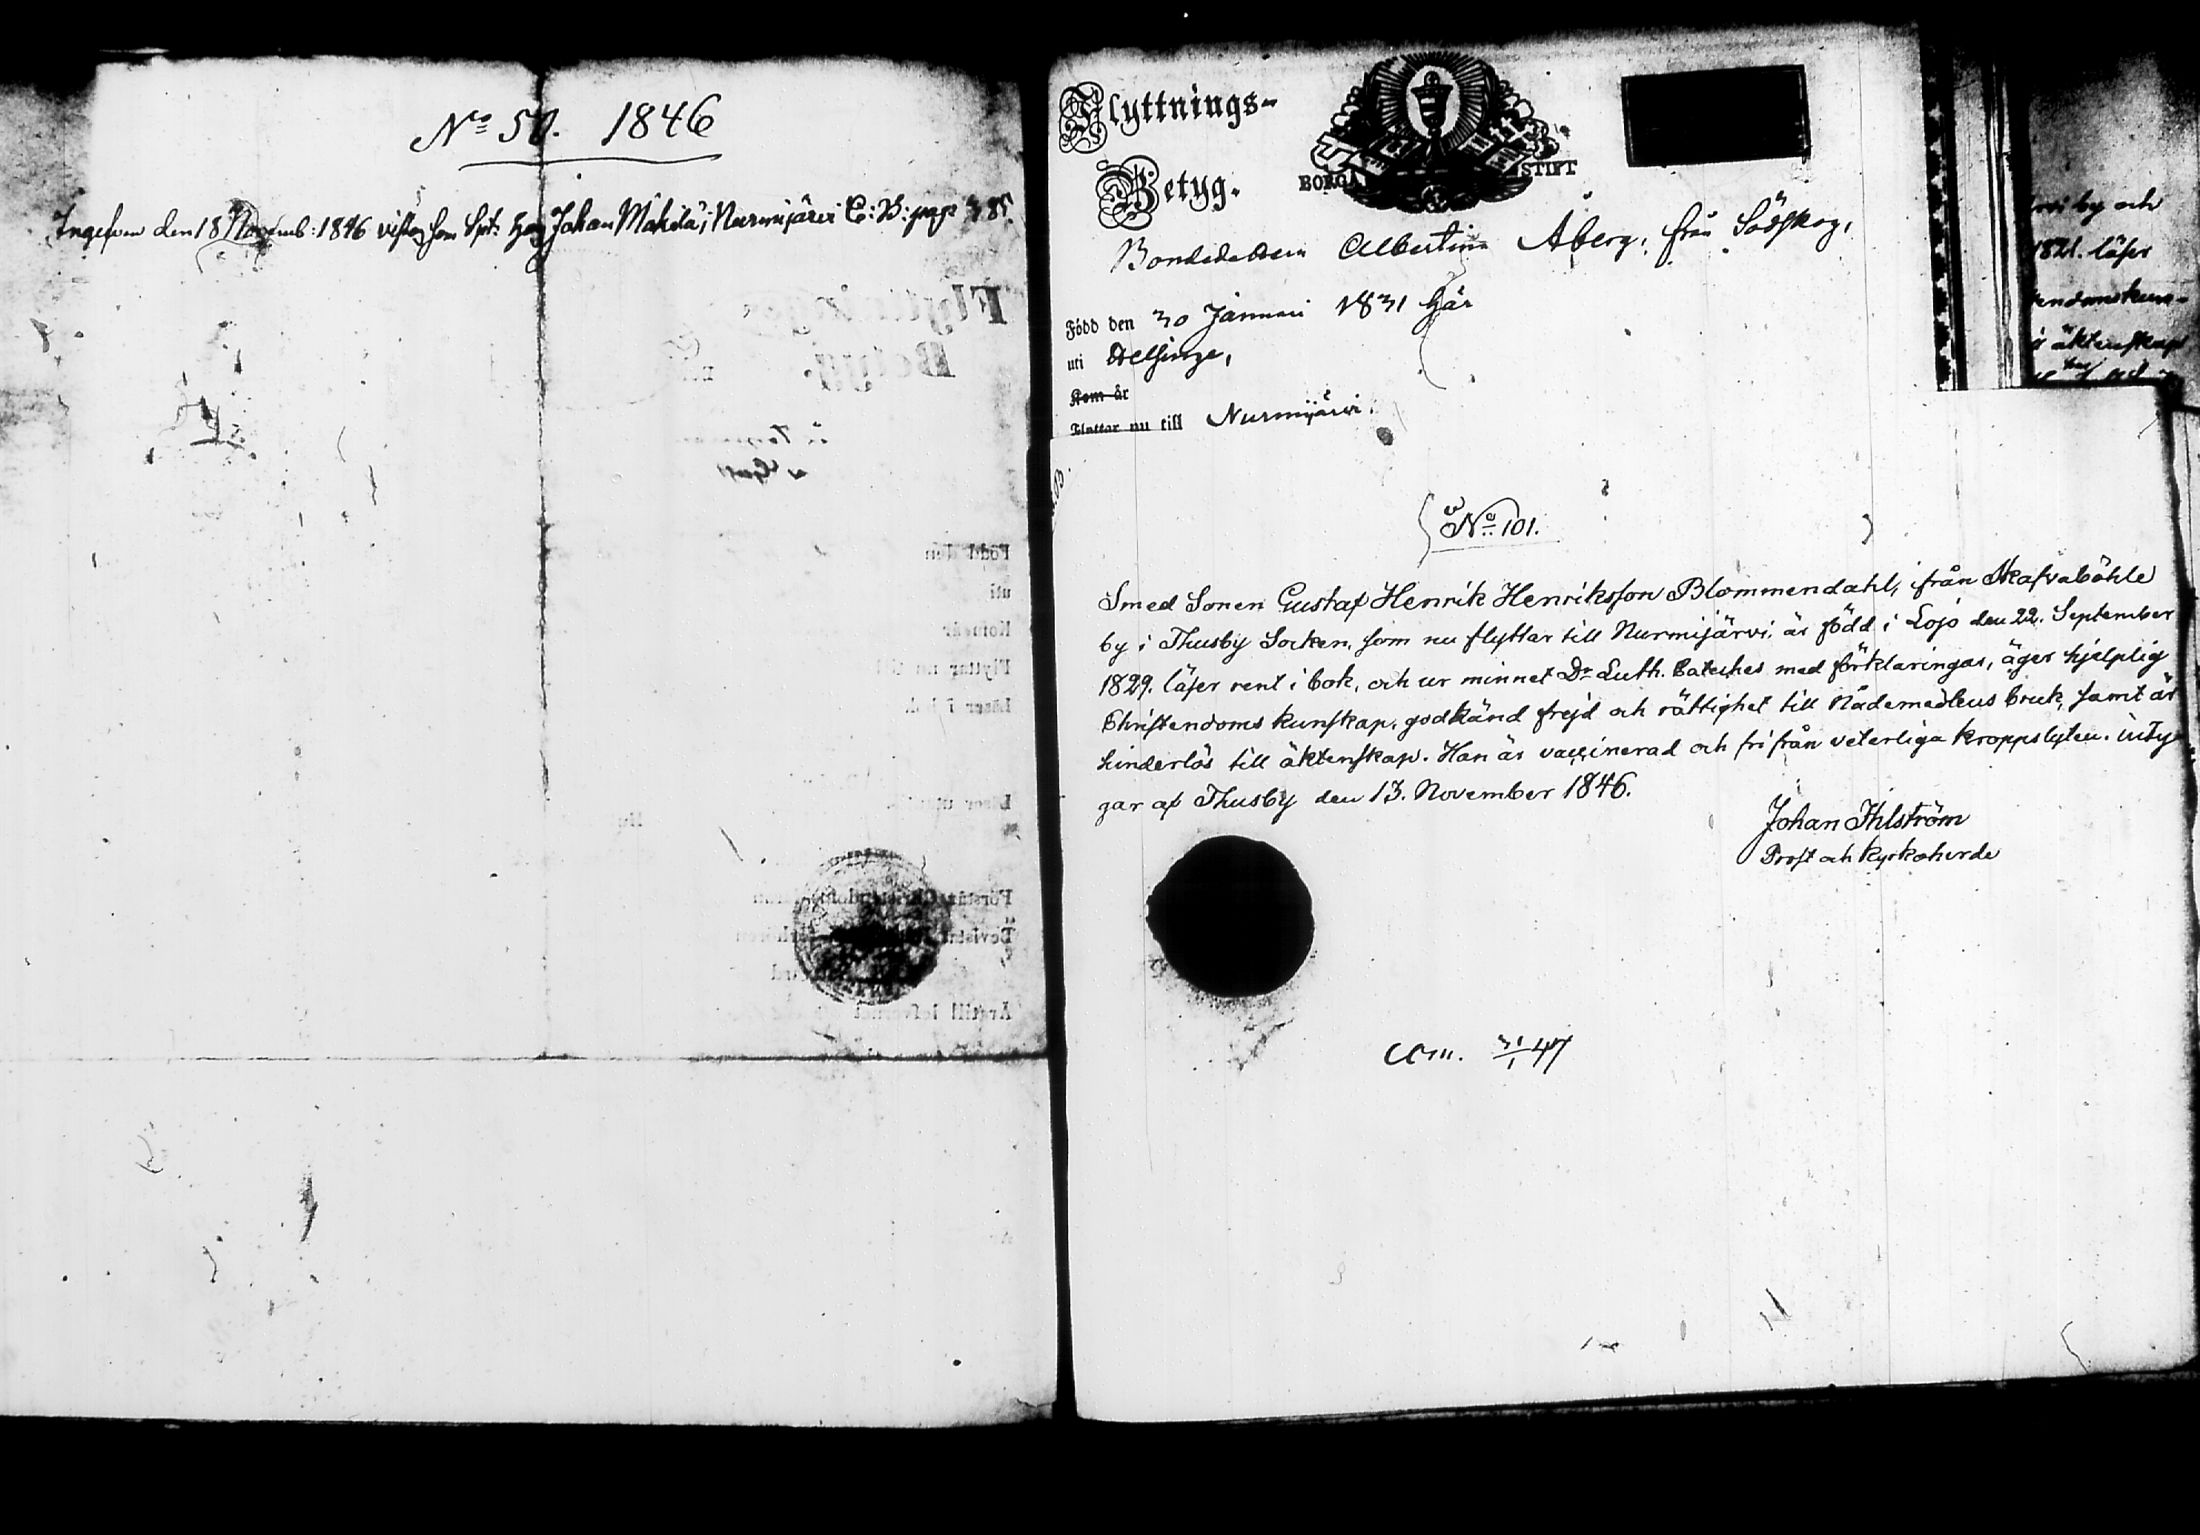 No 50. 1846
den 18 Novemb: 1846 som Johan Mäkilä i Nurmijärvi C:B: page 385.
Flyttnings-
Betyg.
BORGÅ STIFT
Bondedottren Albertina Åberg, från Södskog,
Född den 30 Januari 1831 här
uti Helsinge,
Kom år
Flyttar nu till Nurmijärvi.
No 101.
Smed Sonen Gustaf Henrik Henriksson Blommendahl, från Skafvaböhle
by i Thusby Socken, som nu flyttar till Nurmijärvi, är född i Lojo den 22. September
1829. läser rent i bok, och ur minnet Dr Luth. Cateches med förklaringar, äger hjelplig
Christendoms kunskap, godkänd frejd och rättighet till Nådemedlens bruk, samt är
hinderlös till äktenskap. Han är vaccinerad och fri från veterliga kroppslyten. inty
gar af Thusby den 13. November 1846.
Johan Ihlström
Prost och Kyrkoherde
31/1 47
by och
1821. läser
endomskun-
äktenskap